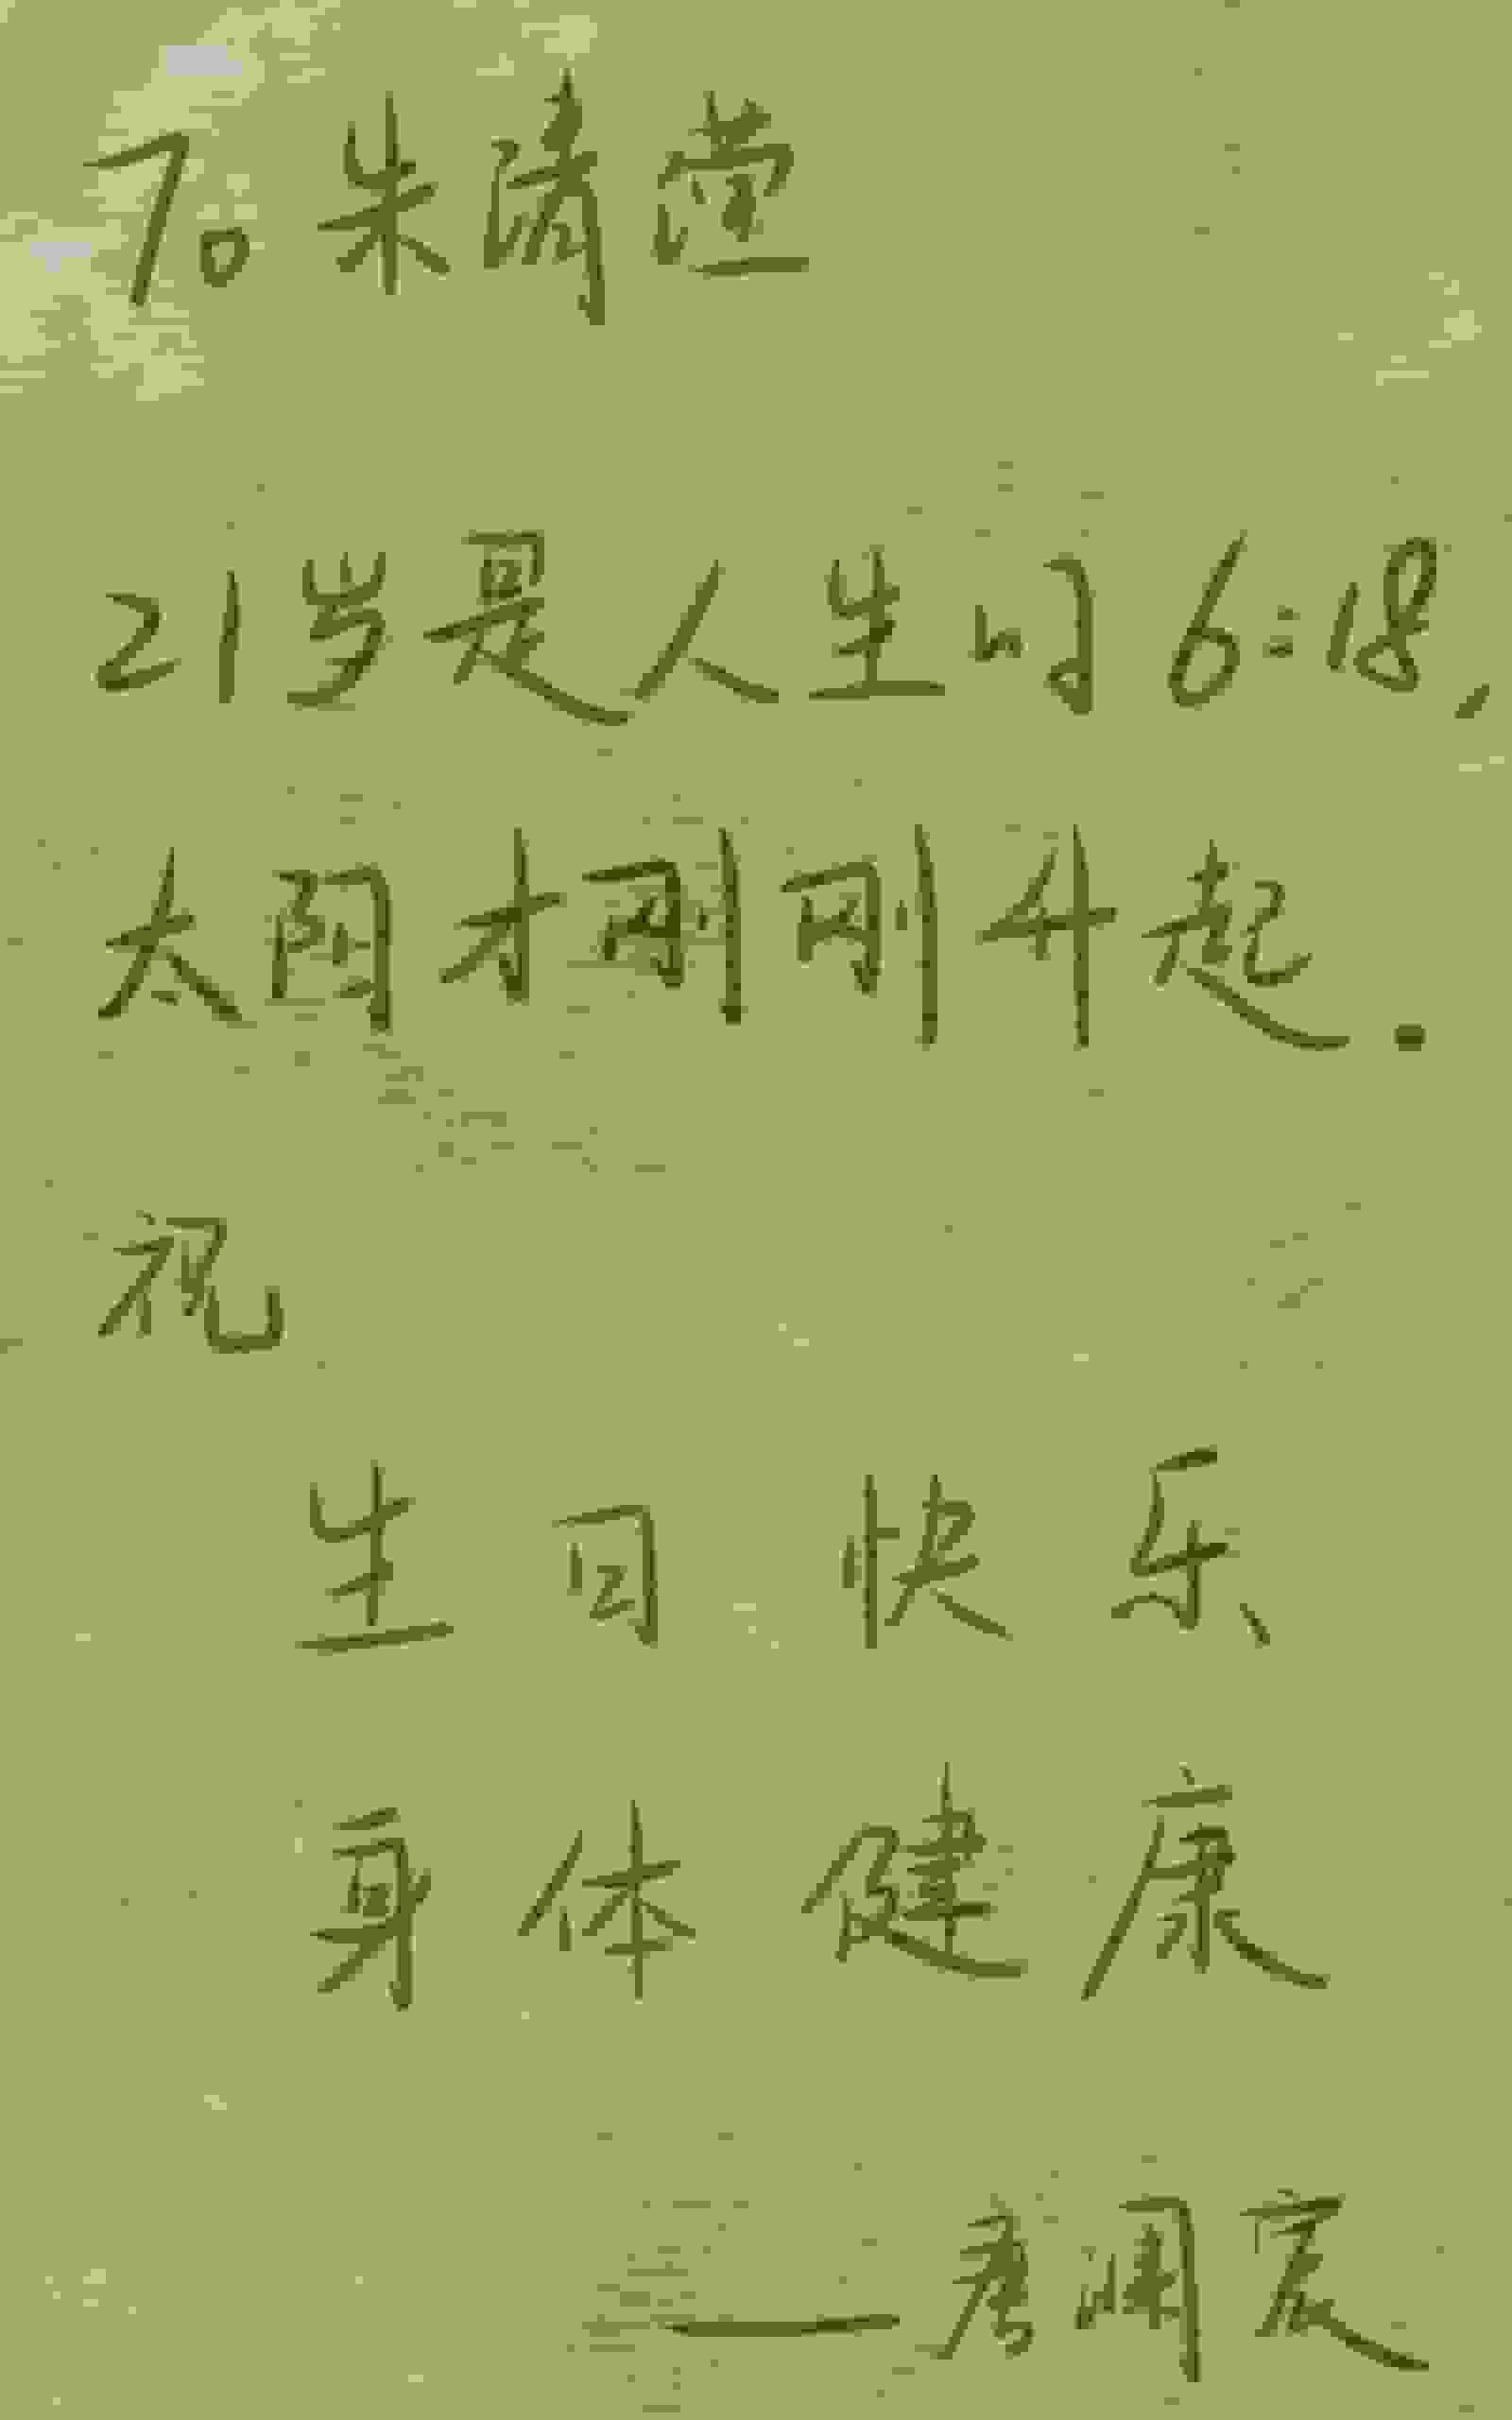 To 朱清莹
21岁是人生的6:18,
太阳才刚刚升起.
祝
生日快乐
身体健康
——唐闻宸